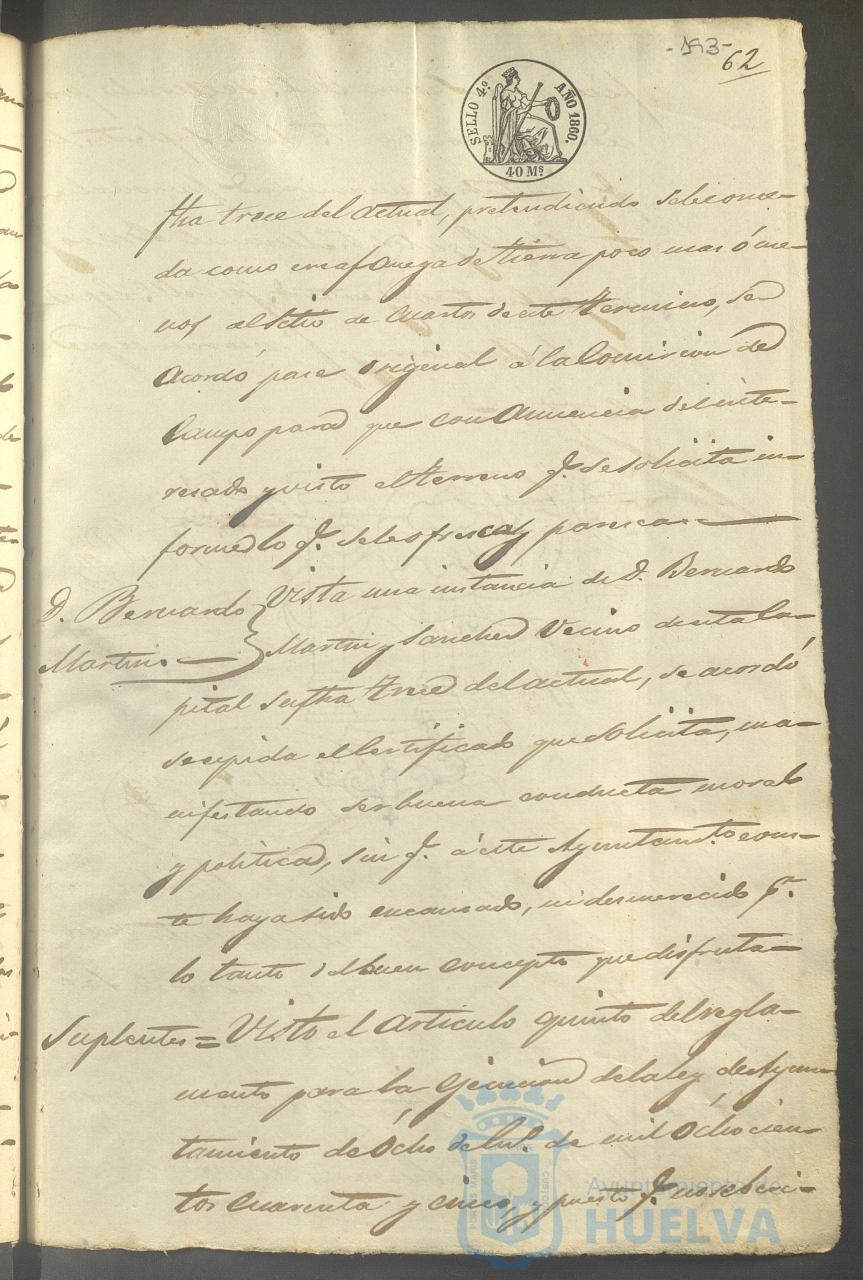 -193-
62
SELLO 4.º AÑO 1860.
40 Ms
fha trece del actual, pretendiendo se le conce-
da como una fanega de tierra poco mas ó me-
nos al Sitio de Cuartos de este Termino, se
acordó pase original á la Comision de
Campo para que con Anuencia del inte-
resado y visto el terreno q.e se solicita in-
forme lo q.e se le ofresca y paresca
D. Bernardo
Martin
Vista una instancia de D. Bernardo
Martin y Sanches Vecino de esta Ca-
pital su fha trece del actual, se acordó
se expida el Certificado que solicita, ma-
nifestando ser buena conducta moral
y politica, sin q.e á este Ayuntam.to cons-
te haya sido encausado, ni desmerecido p.r
lo tanto del buen concepto que disfruta
Suplentes = Visto el articulo quinto del regla-
mento para la Ejecucion de la ley de Ayun-
tamiento de Ocho de En.o de mil Ochocien-
tos cuarenta y cinco, y puesto q.e
Ayuntamiento de
HUELVA